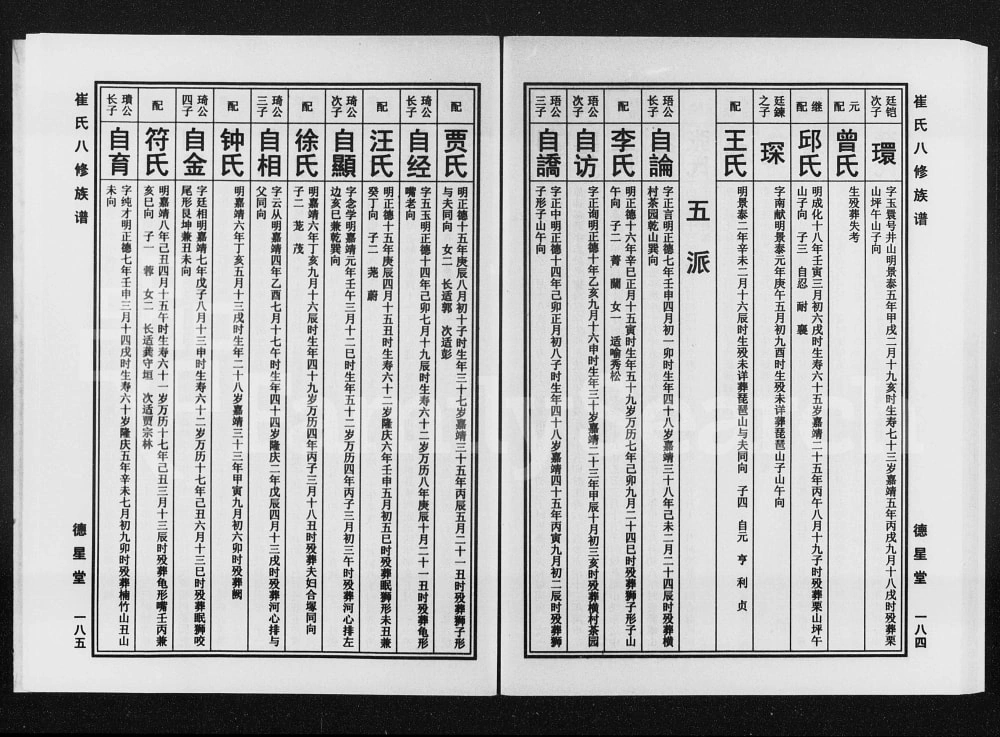 崔氏八修族谱
德星堂
一八四
廷铠次子
環
字玉霙号井山明景泰五年甲戌二月十九亥时生寿七十三岁嘉靖五年丙戌九月十八戌时殁葬栗
山坪午山子向
元配
曾氏
生殁葬失考
继配
邱氏
明成化十八年壬寅三月初六戌时生寿六十五岁嘉靖二十五年丙午八月十九子时殁葬栗山坪午
山子向 子三 自忍 耐 襄
廷鍊之子
琛
字南献明景泰元年庚午五月初九酉时生殁未详葬琵琶山子山午向
配
王氏
明景泰二年辛未二月十六辰时生殁未详葬琵琶山与夫同向 子四 自元 亨 利 贞
五派
珸公长子
自論
字正言明正德七年壬申四月初一卯时生年四十八岁嘉靖三十八年己未二月二十四辰时殁葬横
村茶园乾山巽向
配
李氏
明正德十六年辛巳正月十五寅时生年五十九岁万历七年己卯九月二十四巳时殁葬狮子形子山
午向 子二 菁 蘭 女一 适喻秀松
珸公次子
自访
字正询明正德十年乙亥九月十六申时生年三十岁嘉靖二十三年甲辰十月初三亥时殁葬横村茶园
珸公三子
自譑
字正中明正德十四年己卯正月初八子时生年四十八岁嘉靖四十五年丙寅九月初二辰时殁葬狮
子形子山午向
配
贾氏
明正德十五年庚辰八月初十子时生年三十七岁嘉靖三十五年丙辰五月二十一丑时殁葬狮子形
与夫同向 女二 长适郭 次适彭
琦公长子
自经
字五玉明正德十四年己卯七月十九辰时生寿六十二岁万历八年庚辰十月二十一丑时殁葬龟形
嘴老向
配
汪氏
明正德十五年庚辰四月十五丑时生寿六十二岁隆庆六年壬申五月初五巳时殁葬眠狮形未丑兼
癸丁向 子二 荛 蔚
琦公次子
自顯
字念学明嘉靖元年壬午三月十二巳时生年五十二岁万历四年丙子三月初三午时殁葬河心排左
边亥巳兼乾巽向
配
徐氏
明嘉靖六年丁亥九月十六辰时生年四十九岁万历四年丙子三月十八丑时殁葬夫妇合塚同向
子二 茏 茂
琦公三子
自相
字云从明嘉靖四年乙酉七月十七午时生年四十四岁隆庆二年戊辰四月十三戌时殁葬河心排与
父同向
配
钟氏
明嘉靖六年丁亥五月十三戌时生年二十八岁嘉靖三十三年甲寅九月初六卯时殁葬阙
琦公四子
自金
字廷相明嘉靖七年戊子八月十三申时生寿六十二岁万历十七年己丑六月十三巳时殁葬眠狮咬
尾形艮坤兼丑未向
配
符氏
明嘉靖八年己丑四月十五午时生寿六十一岁万历十七年己丑三月十三辰时殁葬龟形嘴壬丙兼
亥巳向 子一 蓉 女二 长适龚守垣 次适贾宗林
璝公长子
自育
字纯才明正德七年壬申三月十四戌时生寿六十岁隆庆五年辛未七月初九卯时殁葬楠竹山丑山
未向
崔氏八修族谱
德星堂
一八五